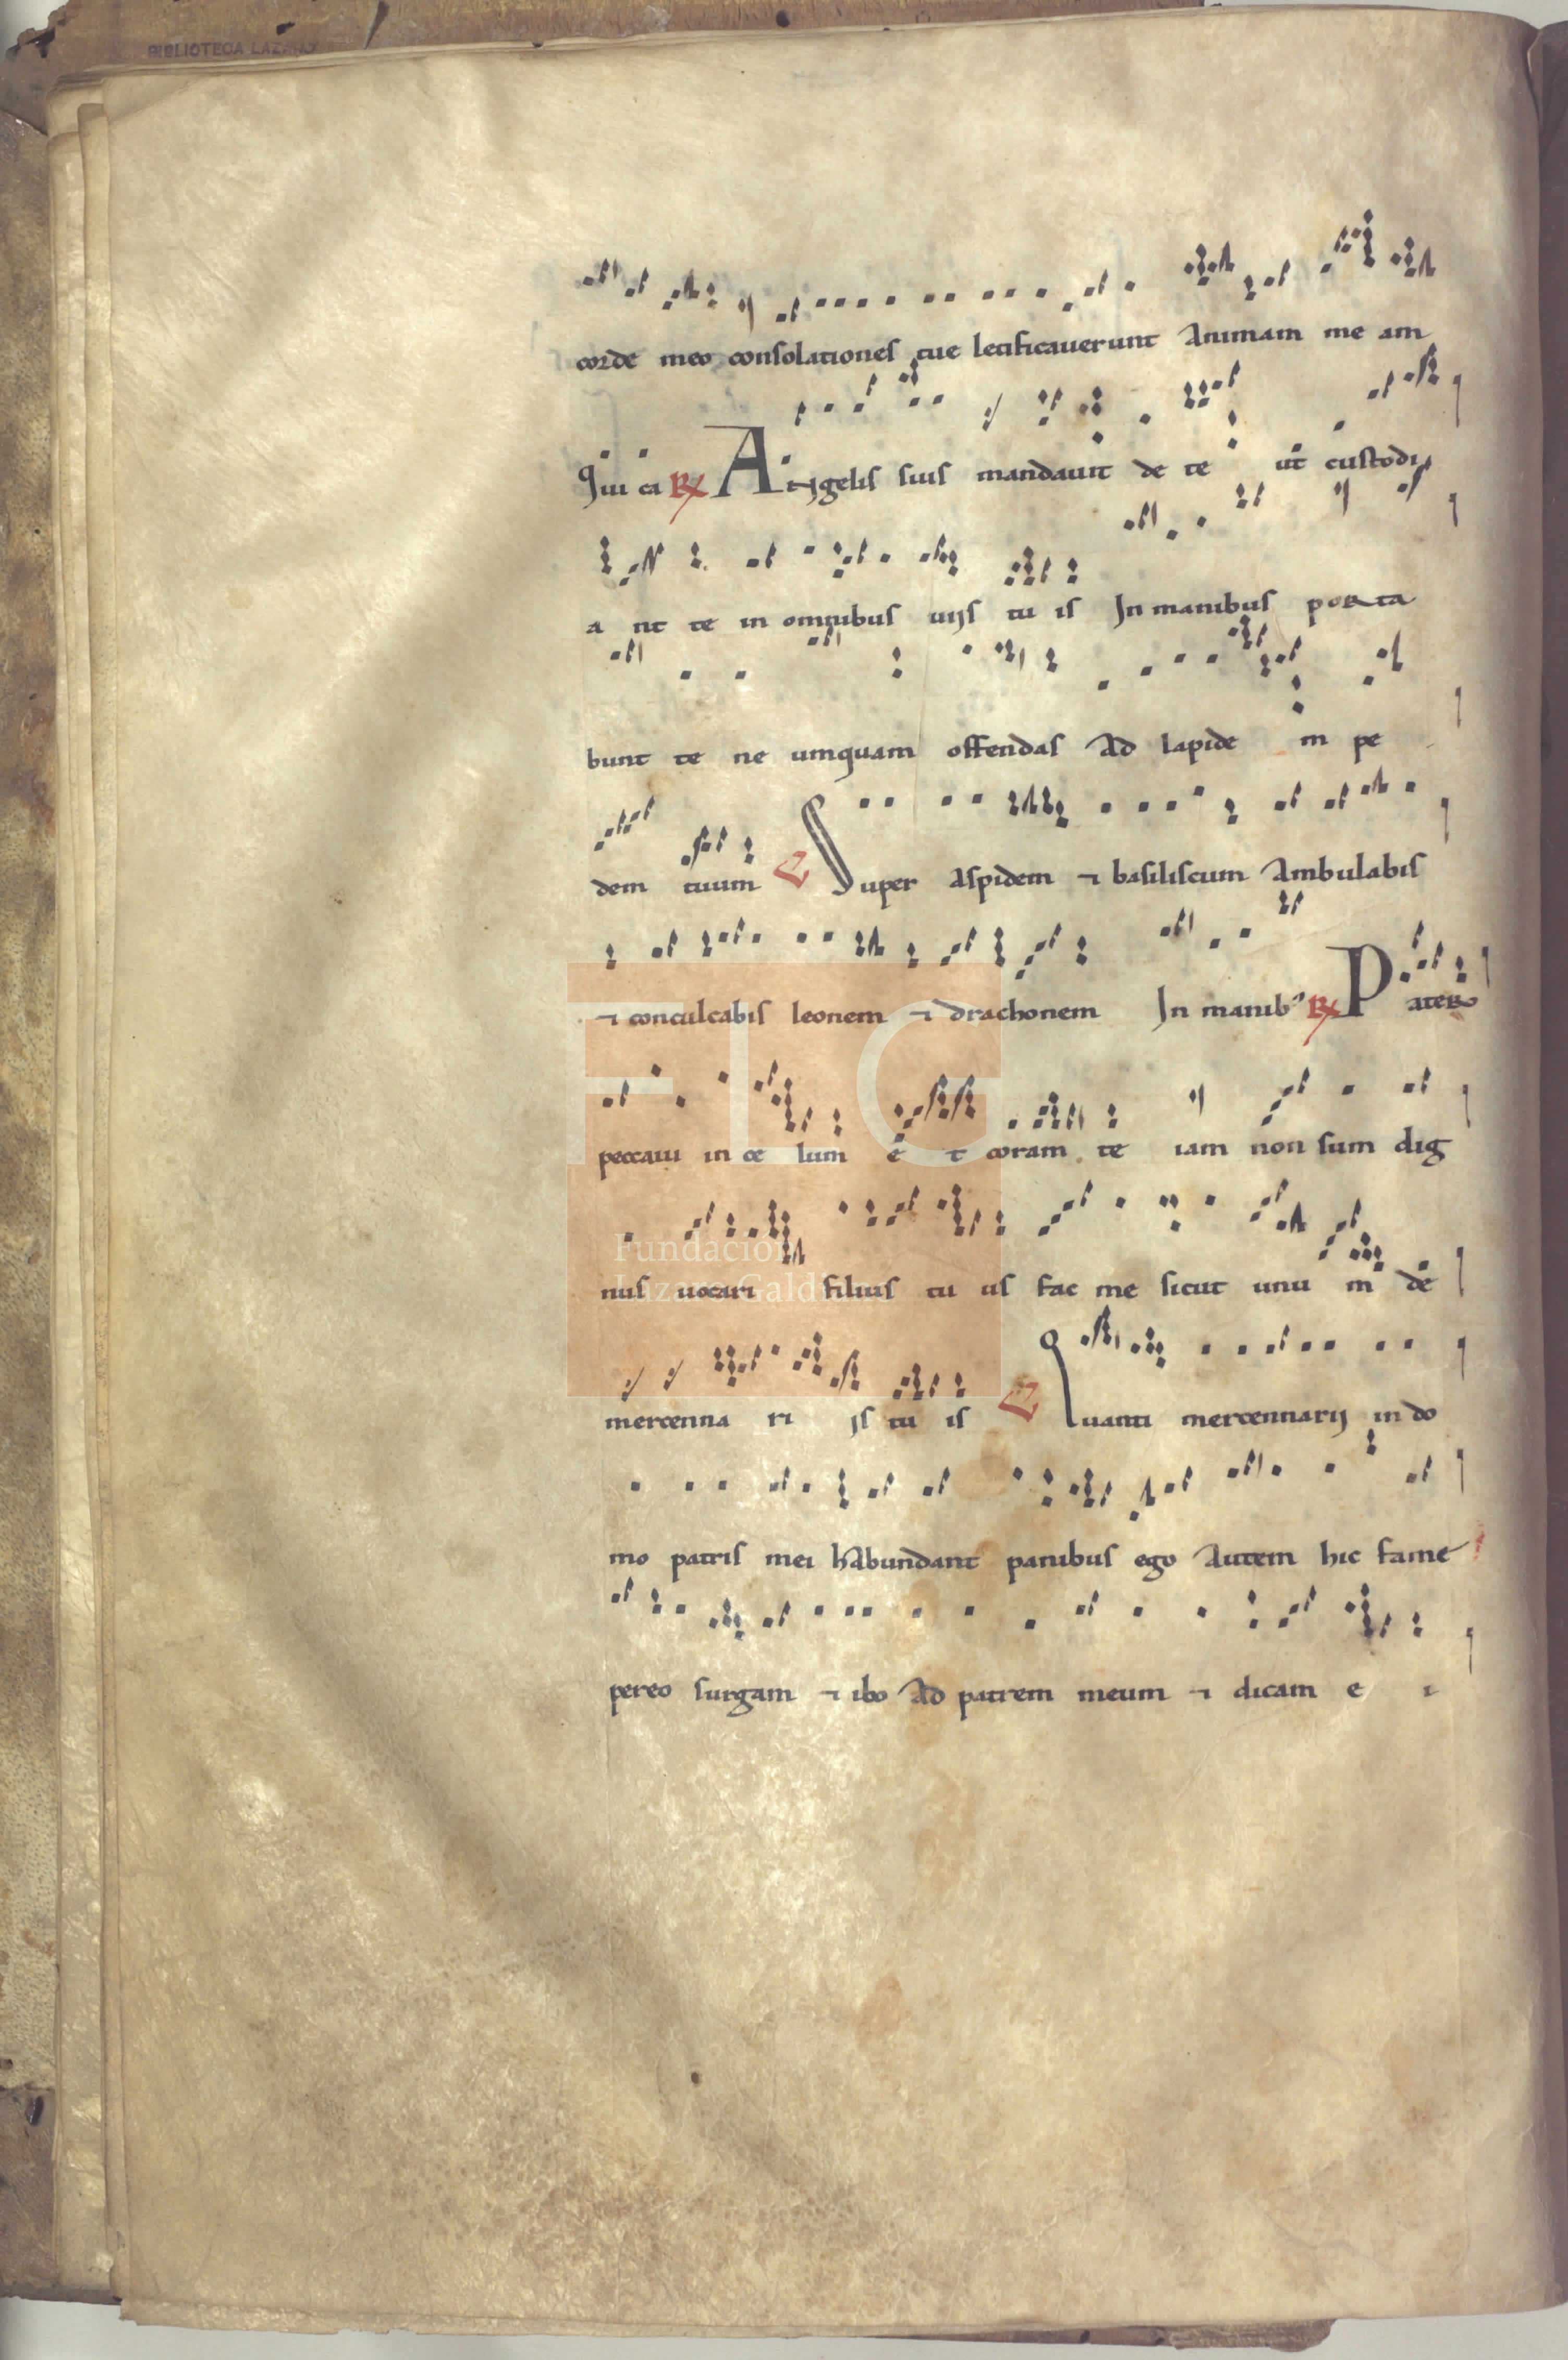 BIBLIOTECA LAZARO
corde meo consolationes tue letificauerunt animam me am
Qui ca ℟ Angelis suis mandauit de te ut custodi
a nt te in omnibus uijs tu is In manibus porta
bunt te ne umquam offendas ad lapide m pe
dem tuum ℣ Super aspidem ⁊ basiliscum ambulabis
⁊ conculcabis leonem ⁊ drachonem In manibꝰ ℟ Pater
peccaui in ce lum e t coram te iam non sum dig
nus uocari filius tu us fac me sicut unu m de
mercenna ri js tu is ℣ Quanti mercennarij in do
mo patris mei habundant panibus ego autem hic fame
pereo surgam ⁊ ibo ad patrem meum ⁊ dicam e i
FLG
Fundación
Lázaro Galdiano